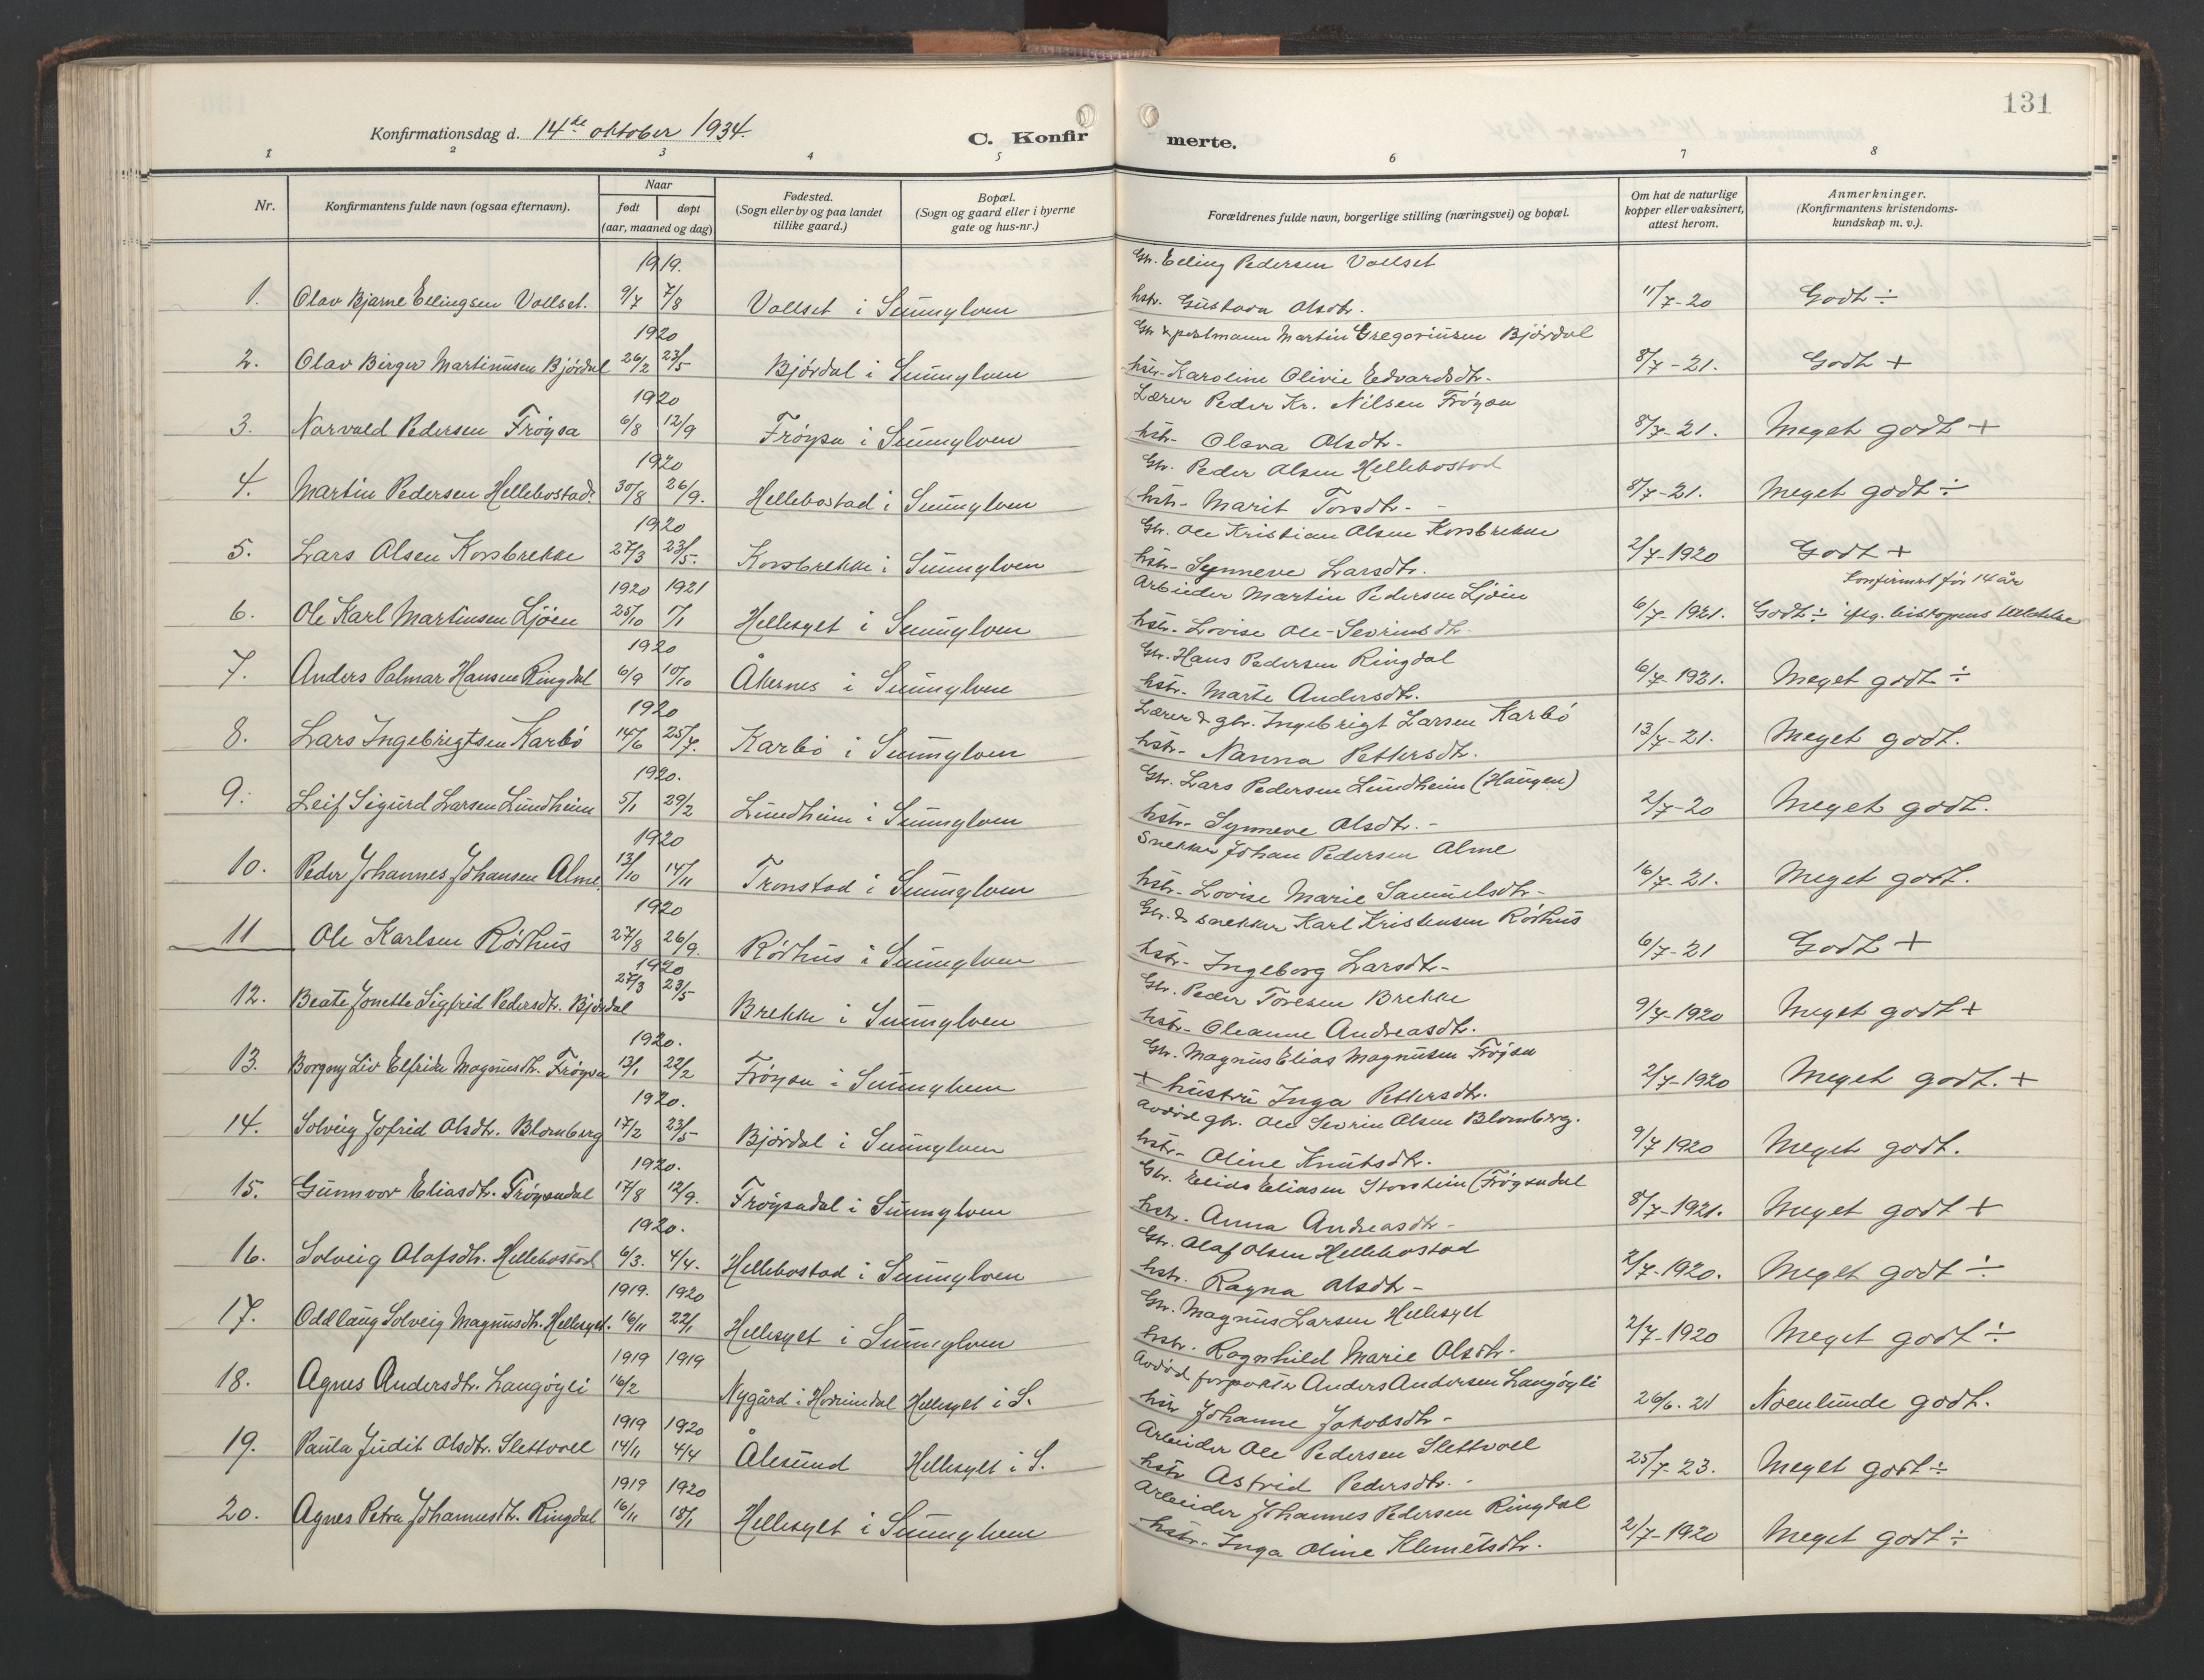 131
Konfirmationsdag d. 14de oktober 1934.
C. Konfirmerte.
1 2 3 4 5 6 7 8
Nr.
Konfirmantens fulde navn (ogsaa efternavn).
Naar
født døpt
(aar, maaned og dag)
Fødested.
(Sogn eller by og paa landet
tillike gaard.)
Bopæl.
(Sogn og gaard eller i byerne
gate og hus-nr.)
Forældrenes fulde navn, borgerlige stilling (næringsvei) og bopæl.
Om hat de naturlige
kopper eller vaksinert,
attest herom.
Anmerkninger.
(Konfirmantens kristendoms-
kundskap m. v.).
1919. Gbr. Elling Pedersen Vollset
1. Olav Bjarne Ellingsen Vollset. 9/7 7/8 Vollset i Sunnylven hstr. Gustava Olsdtr. 11/7-20 Godt ÷
1920 Gbr & postmann Martin Gregoriussen Bjørdal
2. Olav Birger Martinusen Bjørdal 26/2 23/5 Bjørdal i Sunnylven hstr. Karoline Olivie Edvardsdtr. 8/7-21. Godt +
1920 Lærer Peder Kr. Nilsen Frøysa
3. Norvald Pedersen Frøysa 6/8 12/9 Frøysa i Sunnylven hstr- Olava Olsdtr- 8/7-21. Meget godt +
1920 Gbr. Peder Olsen Hellebostad
4. Martin Pedersen Hellebostad. 30/8 26/9. Hellebostad i Sunnylven hstr- Marit Torsdtr.- 8/7-21. Meget godt ÷
1920 Gbr. Ole Kristian Olsen Korsbrekke
5. Lars Olsen Korsbrekke 27/3 23/5. Korsbrekke i Sunnylven hstr- Synneve Larsdtr. 2/7-1920 Godt +
1920 1921 Arbeider Martin Pedersen Ljøen Konfirmert før 14 år
6. Ole Karl Martinsen Ljøen 25/10 1/1 Hellesylt i Sunnylven hstr. Lovise Ole-Sevrinsdtr. 6/7-1921. Godt ÷ ifølg. biskopens tillatelse
1920 Gbr. Hans Pedersen Ringdal
7. Anders Palmar Hansen Ringdal 6/9 10/10 Åkernes i Sunnylven hstr. Marte Andersdtr. 6/7-1921. Meget godt ÷
1920 Lærer & gbr. Ingebrigt Larsen Karbø
8. Lars Ingebrigtsen Karbø 14/6 25/7. Karbø i Sunnylven hstr- Nanna Pettersdtr. 13/7-21. Meget godt.
1920. Gbr. Lars Pedersen Lundheim (Haugen)
9. Leif Sigurd Larsen Lundheim 5/1 29/2 Lundheim i Sunnylven hstr- Synneve Olsdtr.- 2/7-20 Meget godt.
1920 Snekker Johan Pedersen Alme
10. Peder Johannes Johansen Alme. 13/10 14/11 Tronstad i Sunnylven hstr- Lovise Marie Samuelsdtr- 16/7-21. Meget godt.
1920 Gbr. & snekker Karl Kristensen Rødhus
11 Ole Karlsen Rødhus 27/8 26/9. Rødhus i Sunnylven hstr- Ingeborg Larsdtr- 6/7-21 Godt +
1920 Gbr. Peder Toresen Brekke
12. Beate Jonette Sigfrid Pedersdtr. Bjørdal 27/3 23/5 Brekke i Sunnylven hstr- Oleanne Andreasdtr. 9/7-1920 Meget godt +
1920. Gbr. Magnus Elias Magnusen Frøysa
13. Borgny Liv Elfride Magnusdtr. Frøysa 13/1 22/2 Frøysa i Sunnylven + hustru Inga Pettersdtr. 2/7-1920 Meget godt. +
1920. Avdød gbr. Ole Sevrin Olsen Blomberg.
14. Solveig Jofrid Olsdtr. Blomberg 17/2 23/5 Bjørdal i Sunnylven hstr- Oline Knutsdtr. 9/7 1920 Meget godt.
1920. Gbr. Elias Eliasen Storeim (Frøysadal
15. Gunnvor Eliasdtr. Frøysadal 17/8 12/9. Frøysadal i Sunnylven hstr. Anna Andreasdtr- 8/7-1921. Meget godt +
1920. Gbr. Olaf Olsen Hellebostad
16. Solveig Olafsdtr. Hellebostad 6/3. 4/4. Hellebostad i Sunnylven hstr. Ragna Olsdtr- 2/7-1920. Meget godt ÷
1919. 1920 Gbr. Magnus Larsen Hellesylt
17. Oddlaug Solveig Magnusdtr. Hellesylt. 16/11 22/1 Hellesylt i Sunnylven hstr. Ragnhild Marie Olsdtr. 2/7-1920 Meget godt ÷
1919 1919 Avdød forpakter Anders Andersen Langøyli
18. Agnes Andersdtr. Langøyli 16/2 Nygård i Hornindal Hellesylt i S. hstr Johanne Jakobsdtr- 26/6-21 Noenlunde godt.
1919 1920 Arbeider Ole Pedersen Slettvoll
19. Paula Judit Olsdtr. Slettvoll 14/11 4/4 Ålesund Hellesylt i S. hstr Astrid Pedersdtr.- 25/7-23. Meget godt ÷
1919 1920 Arbeider Johannes Pedersen Ringdal
20. Agnes Petra Johannesdtr. Ringdal 16/11 18/1 Hellesylt i Sunnylven hstr. Inga Oline Klemetsdtr. 2/7-1920 Meget godt ÷